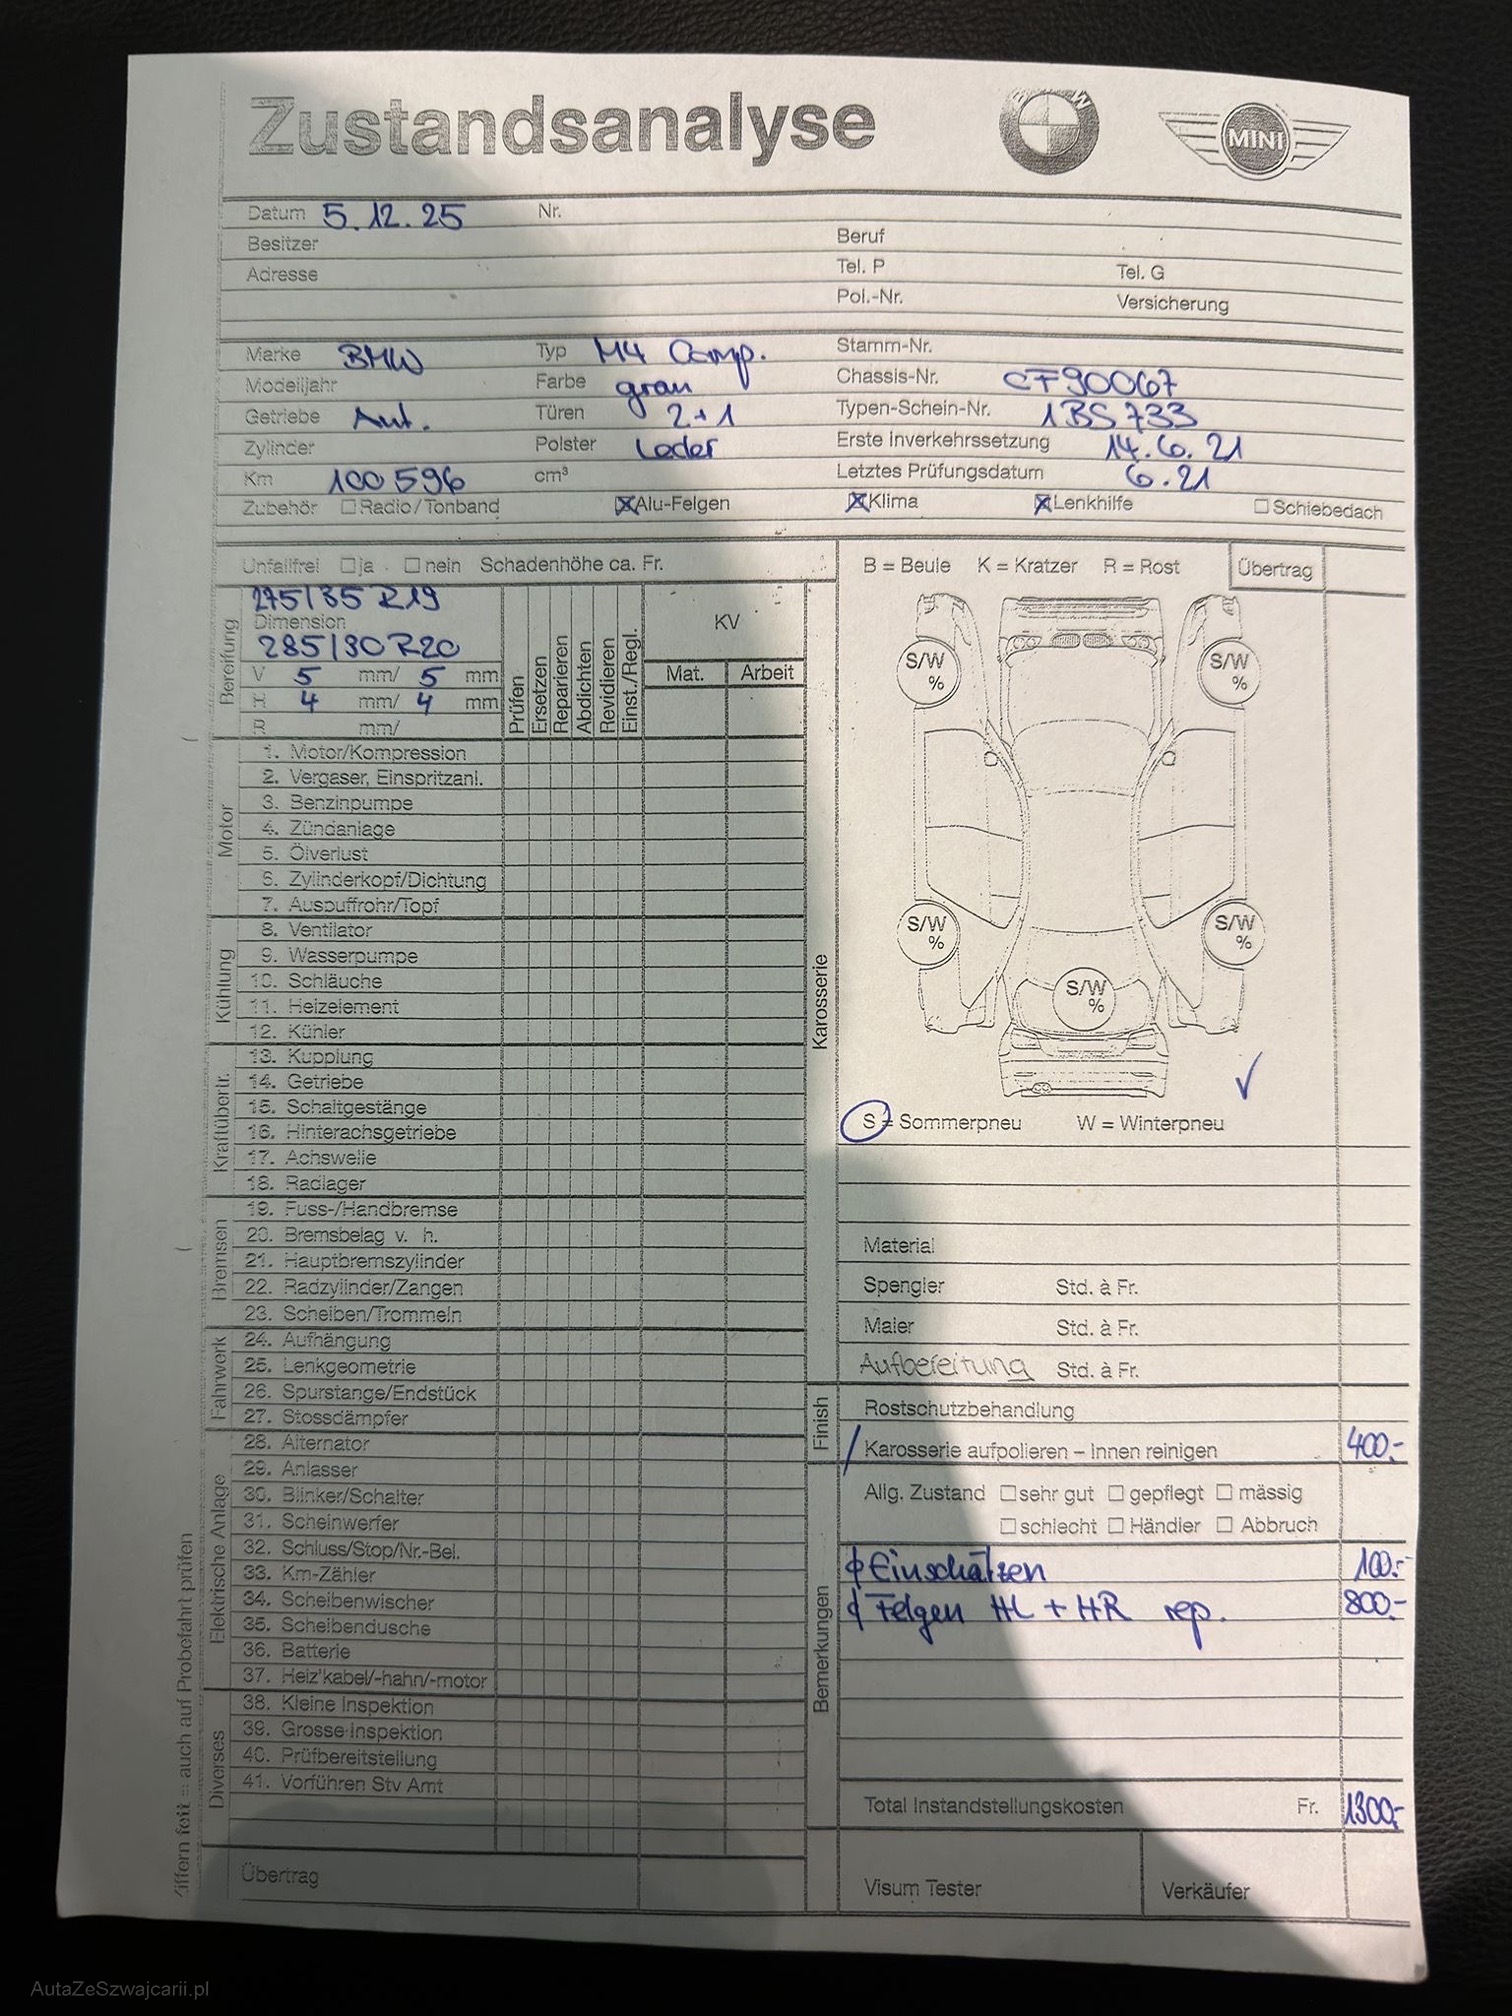 Zustandsanalyse
BMW
MINI
Datum 5.12.25 Nr.
Besitzer
Beruf
Adresse
Tel. P
Tel. G
Pol.-Nr.
Versicherung
Marke BMW Typ M4 Comp. Stamm-Nr.
Modelljahr Farbe grau Chassis-Nr. CF90067
Getriebe Aut. Türen 2+1 Typen-Schein-Nr. 1BS733
Zylinder Polster Leder Erste Inverkehrssetzung 14.6.21
Km 100596 cm³ Letztes Prüfungsdatum 6.21
Zubehör Radio/Tonband Alu-Felgen Klima Lenkhilfe Schiebedach
Unfallfrei ja nein Schadenhöhe ca. Fr.
Bereifung
275/35 R19
Dimension
285/30 R20
V 5 mm/ 5 mm
H 4 mm/ 4 mm
R mm/
Prüfen
Ersetzen
Reparieren
Abdichten
Revidieren
Einst./Regl.
KV
Mat. Arbeit
Motor
1. Motor/Kompression
2. Vergaser, Einspritzanl.
3. Benzinpumpe
4. Zündanlage
5. Ölverlust
6. Zylinderkopf/Dichtung
7. Auspuffrohr/Topf
Kühlung
8. Ventilator
9. Wasserpumpe
10. Schläuche
11. Heizelement
12. Kühler
Kraftübertr.
13. Kupplung
14. Getriebe
15. Schaltgestänge
16. Hinterachsgetriebe
17. Achswelle
18. Radlager
Bremsen
19. Fuss-/Handbremse
20. Bremsbelag v. h.
21. Hauptbremszylinder
22. Radzylinder/Zangen
23. Scheiben/Trommeln
Fahrwerk
24. Aufhängung
25. Lenkgeometrie
26. Spurstange/Endstück
27. Stossdämpfer
Elektrische Anlage
28. Alternator
29. Anlasser
30. Blinker/Schalter
31. Scheinwerfer
32. Schluss/Stop/Nr.-Bel.
33. Km-Zähler
34. Scheibenwischer
35. Scheibendusche
36. Batterie
37. Heiz'kabel/-hahn/-motor
Diverses
38. Kleine Inspektion
39. Grosse Inspektion
40. Prüfbereitstellung
41. Vorführen Stv Amt
Übertrag
Ziffern fett = auch auf Probefahrt prüfen
B = Beule K = Kratzer R = Rost Übertrag
Karosserie
S/W %
S/W %
S/W %
S/W %
S/W %
S = Sommerpneu W = Winterpneu
Material
Spengler Std. à Fr.
Maler Std. à Fr.
Aufbereitung Std. à Fr.
Finish
Rostschutzbehandlung
Karosserie aufpolieren – Innen reinigen 400.-
Bemerkungen
Allg. Zustand sehr gut gepflegt mässig
schlecht Händler Abbruch
Einschätzen 100.-
Felgen HL + HR rep. 800.-
Total Instandstellungskosten Fr. 1300.-
Visum Tester Verkäufer
AutaZeSzwajcarii.pl